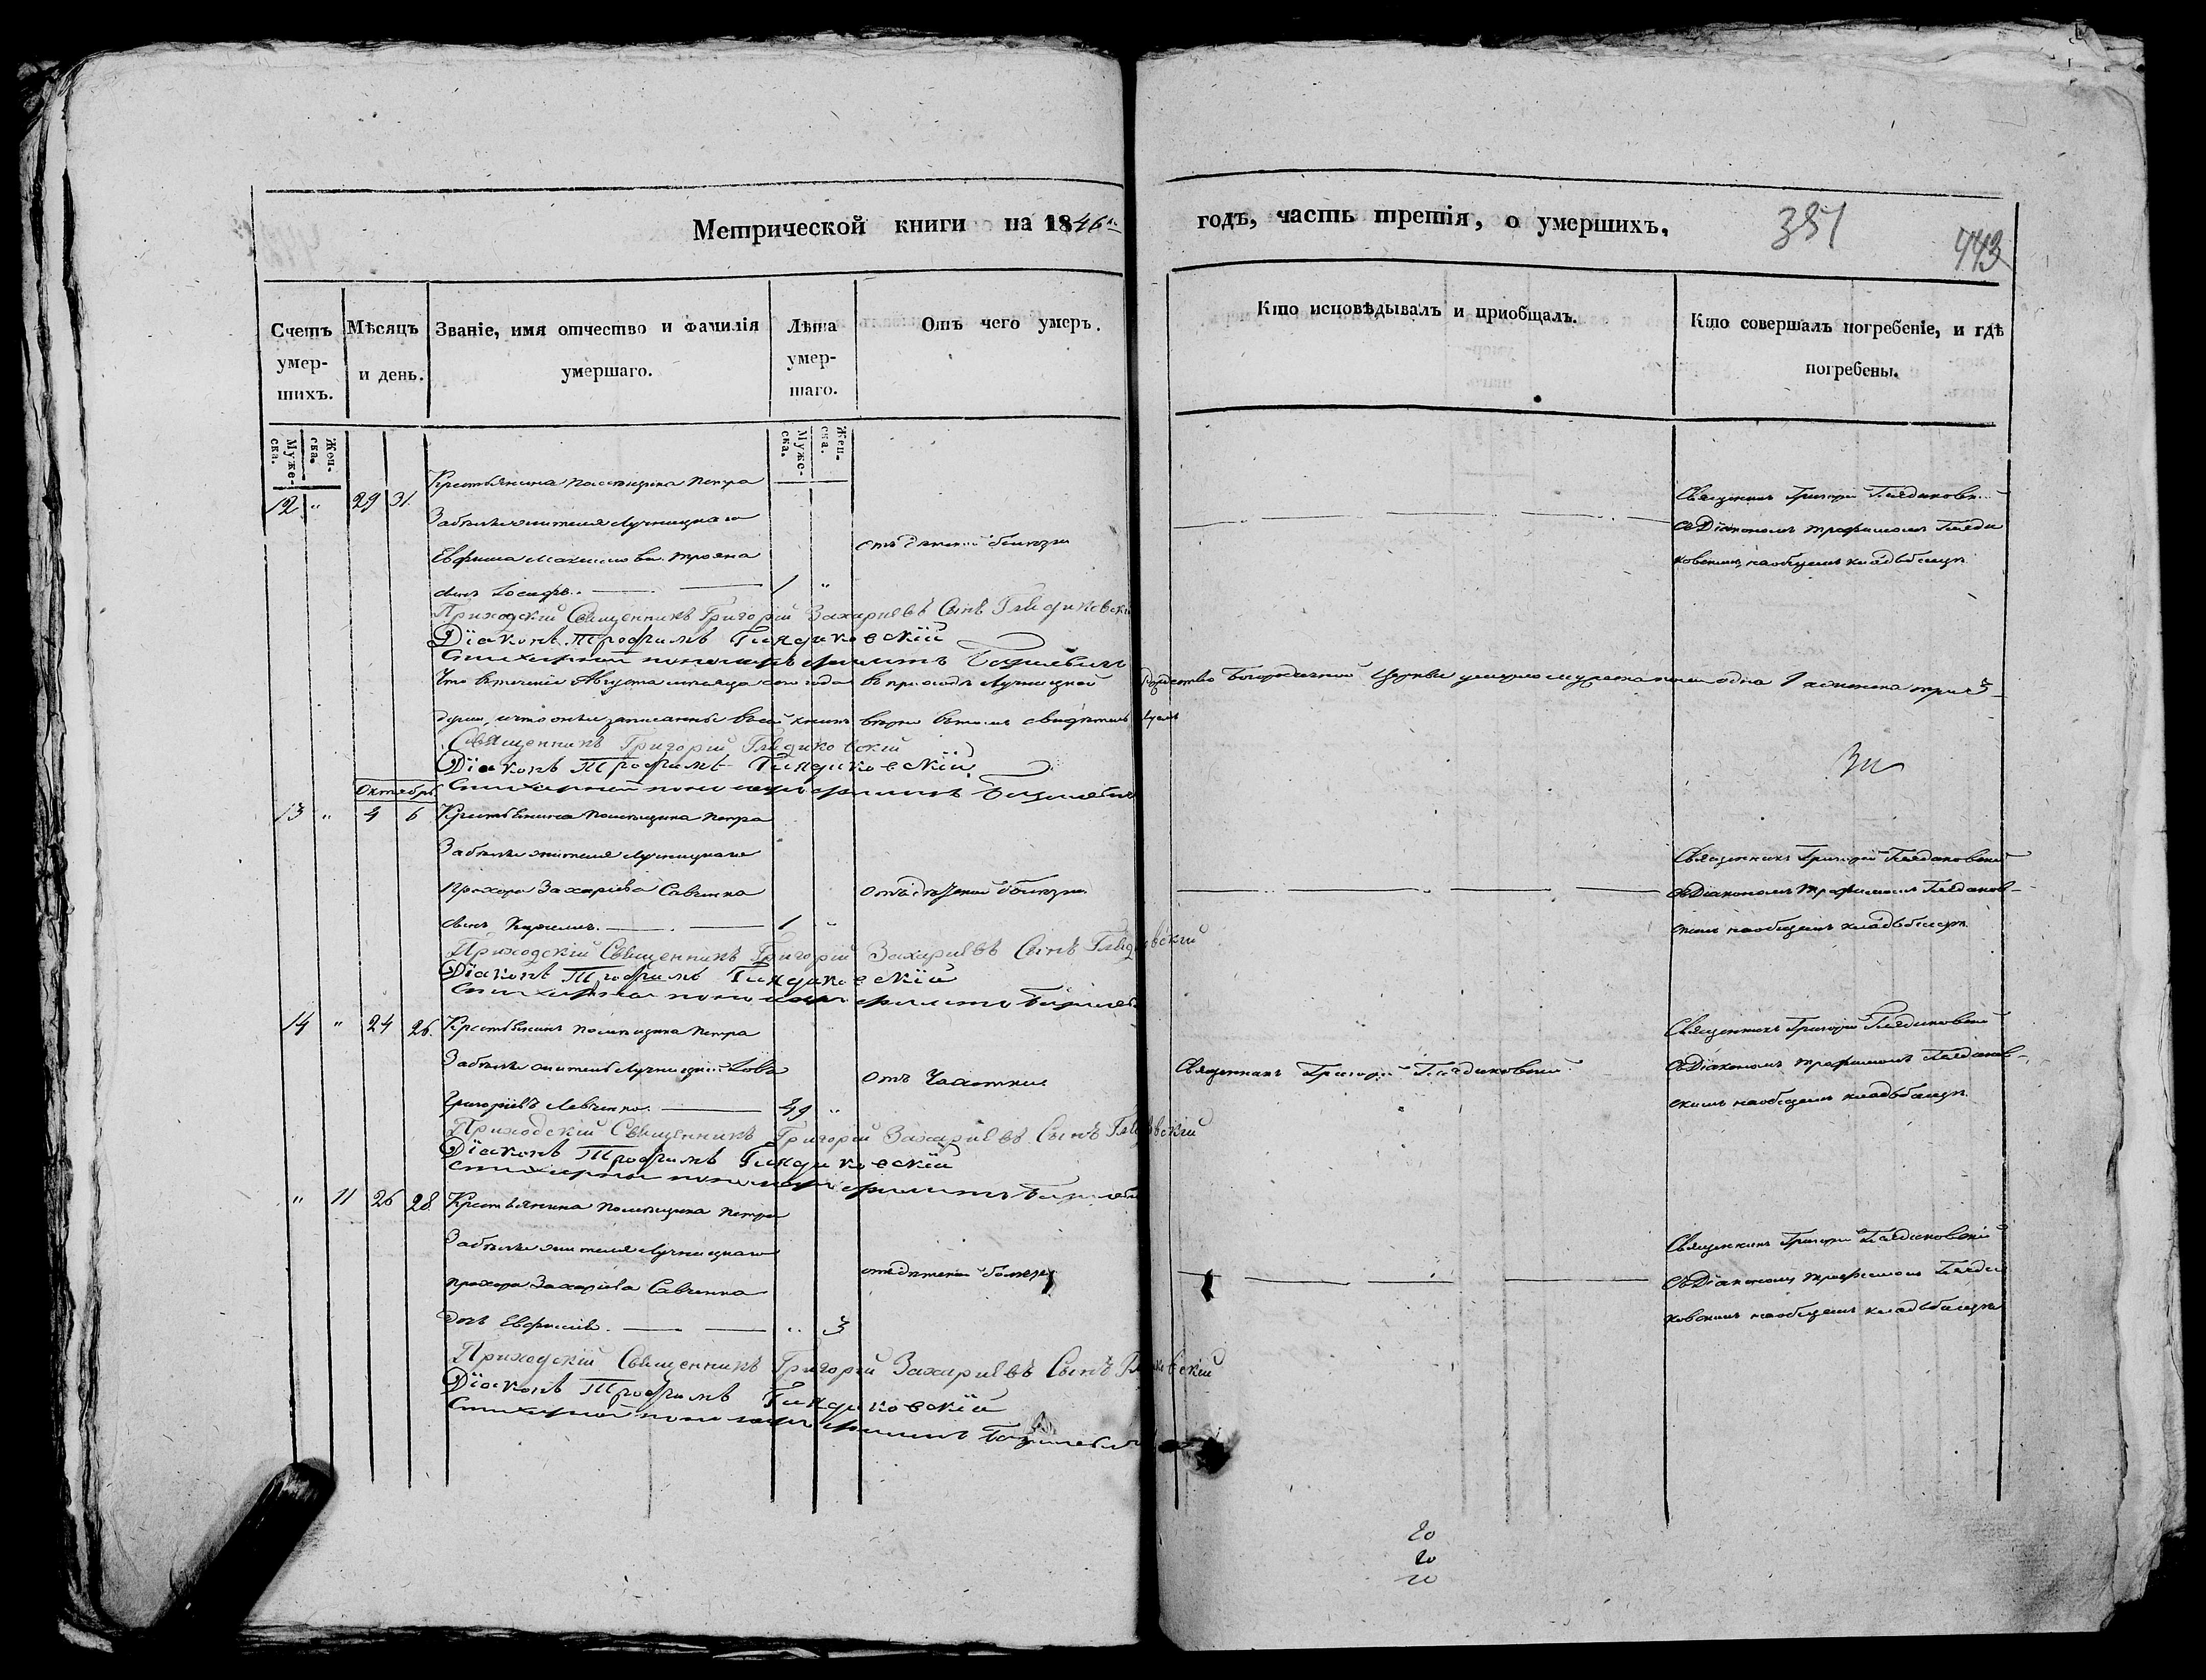 Метрической книги на 1846й
годъ, часть третія, о умершихъ.
381
443
Счетъ умер-шихъ.
Мѣсяцъ и день.
Званіе, имя отчество и фамилія умершаго.
Лѣта умер-шаго.
Отъ чего умеръ.
Кто исповѣдывалъ и пріобщалъ.
Кто совершалъ погребеніе, и гдѣ погребены.
Муже-ска.
Жен-ска.
Муже-ска.
Жен-ска.
12 " 29 31. Крестьянина помѣщика Петра
Забѣлы жителя Лучницкаго
Евфима Максимова Трояна
сынъ Іосифъ. 1 "
отъ дѣтской болѣзни
Священникъ Григорій Гледиковск
съ Діакономъ Трофимомъ Гледи
ковскимъ на общемъ кладбищѣ
Приходскій Священникъ Григорій Захаріевъ Сынъ Гледиковскій
Діаконъ Трофимъ Гледиковскій
Стихарный пономарь Филипъ
Что въ теченіи Августа мѣсяца сего года въ приходѣ Лучницкой Рождество Богородичной Церкви умерло мужеска одна 1 а женска три 3
души, и что они записанны въ сей книгѣ вѣрно въ томъ свидѣтельствуемъ
Священникъ Григорій Гледиковскій
Діаконъ Трофимъ Гледиковскій
Стихарный пономарь Филипъ
Октябрь
13 " 4 6 Крестьянина помѣщика Петра
Забѣлы жителя Лучницкаго
Прохора Захаріева Савченка
сынъ Кириллъ. 1 "
отъ дѣтской болѣзни
Священникъ Григорій Гледиковскій
съ Діакономъ Трофимомъ Гледиков-
скимъ на общемъ кладбищѣ.
Приходскій Священникъ Григорій Захаріевъ Сынъ Гледиковскій
Діаконъ Трофимъ Гледиковскій
Стихарный пономарь Филипъ
14 " 24 26. Крестьянинъ помѣщика Петра
Забѣлы житель Лучницкій
Григоріевъ Левченко. 49 "
отъ Чахотки
Священникъ Григорій Гледиковскій
Священникъ Григорій Гледиковскій
съ Діакономъ Трофимомъ Гледиков-
скимъ на общемъ кладбищѣ.
Приходскій Священникъ Григорій Захаріевъ Сынъ Гледиковскій
Діаконъ Трофимъ Гледиковскій
Стихарный пономарь Филипъ
" 11 26 28. Крестьянина помѣщика Петра
Забѣлы жителя Лучницкаго
Прохора Захаріева Савченка
дочь " 3
отъ дѣтской болѣзни
Священникъ Григорій Гледиковскій
съ Діакономъ Трофимомъ Гледи
ковскимъ на общемъ кладбищѣ
Приходскій Священникъ Григорій Захаріевъ Сынъ Гледиковскій
Діаконъ Трофимъ Гледиковскій
Стихарный пономарь Филипъ
20
20